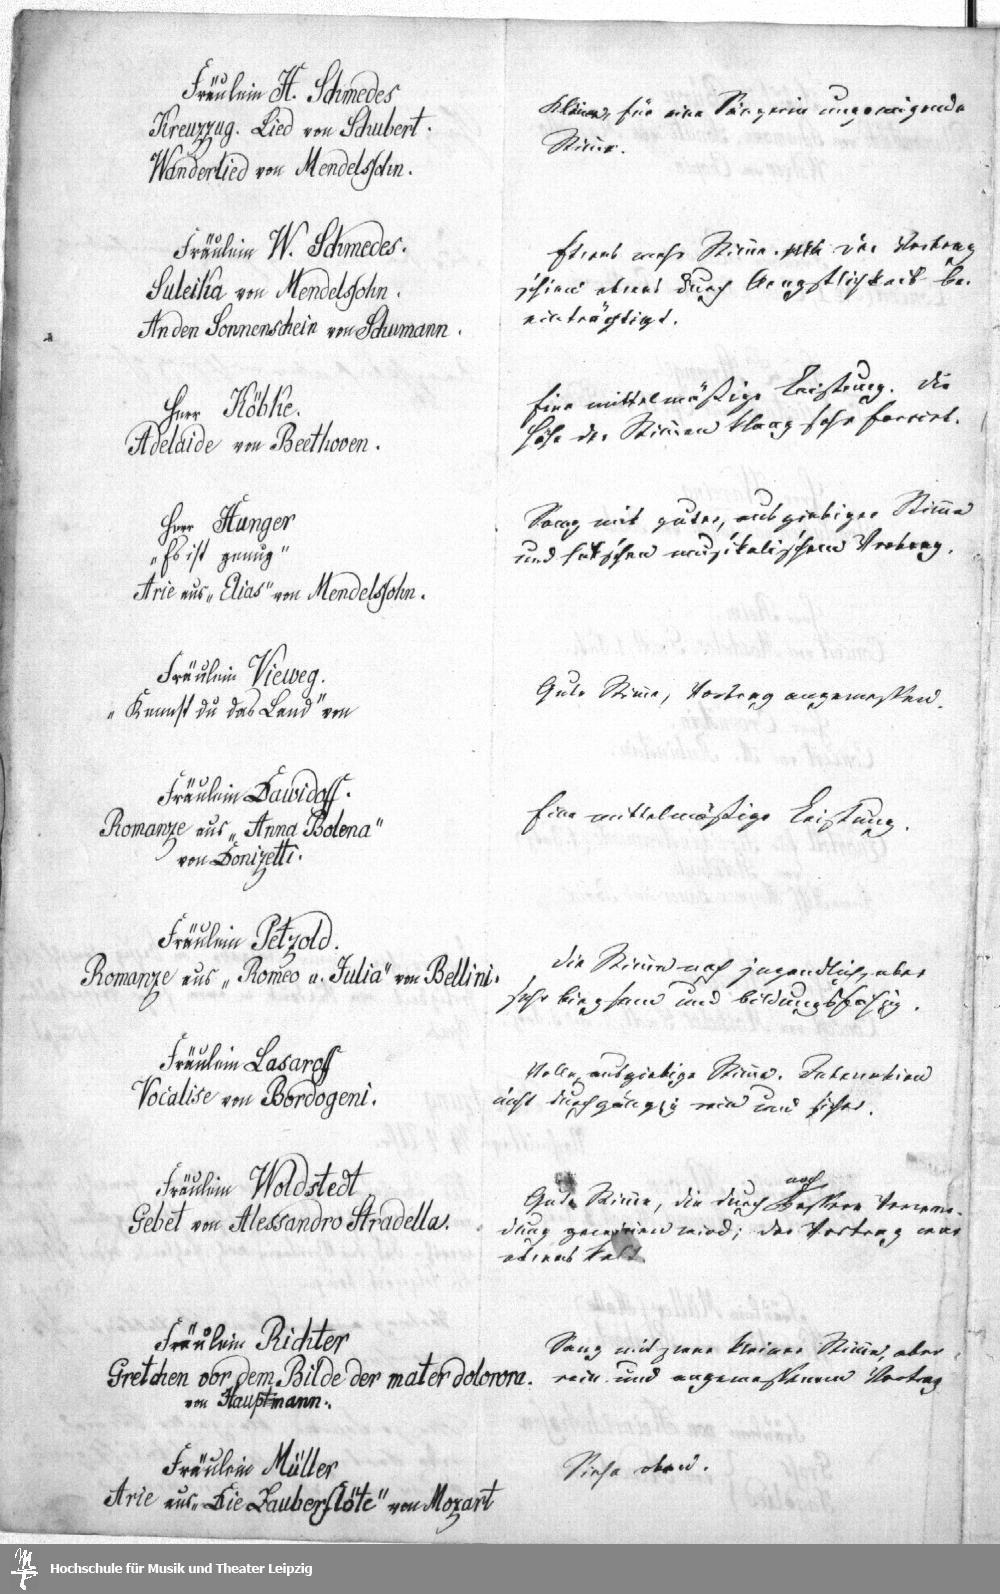 Fräulein H. Schmedes
Kreuzzug. Lied von Schubert.
Wanderlied von Mendelssohn.
Kleine, für eine Sängerin ungenügende
Stimme.
Fräulein W. Schmedes.
Suleika von Mendelssohn.
An den Sonnenschein von Schumann.
Etwas mehr Stimme. der Vortrag
schien etwas durch Aengstlichkeit be-
einträchtigt.
Herr Köbke.
Adelaide von Beethoven.
Eine mittelmäßige Leistung. Die
Höhe der Stimme klang sehr forcirt.
Herr Hunger
„Es ist genug"
Arie aus „Elias" von Mendelssohn.
Sang mit guter, ausgiebiger Stimme
und hübschem musikalischem Vortrag.
Fräulein Vieweg.
„Kennst du das Land" von
Gute Stimme, Vortrag angemessen.
Fräulein Dawidoff.
Romanze aus „Anna Bolena"
von Donizetti.
Eine mittelmäßige Leistung.
Fräulein Petzold.
Romanze aus „Romeo u. Julia" von Bellini.
Die Stimme noch jugendlich, aber
sehr biegsam und bildungsfähig.
Fräulein Lasaroff
Vocalise von Bordogeni.
Volle, ausgiebige Stimme. Intonation
nicht durchgängig rein und sicher.
Fräulein Woldstedt
Gebet von Alessandro Stradella.
Gute Stimme, die durch noch bessere Verwen-
dung gewinnen wird; der Vortrag war
etwas kalt.
Fräulein Richter
Gretchen vor dem Bilde der mater dolorora.
von Hauptmann.
Sang mit zwar kleiner Stimme, aber
rein und angemessenem Vortrag
Fräulein Müller
Arie aus „Die Zauberflöte" von Mozart
Siehe oben.
Hochschule für Musik und Theater Leipzig